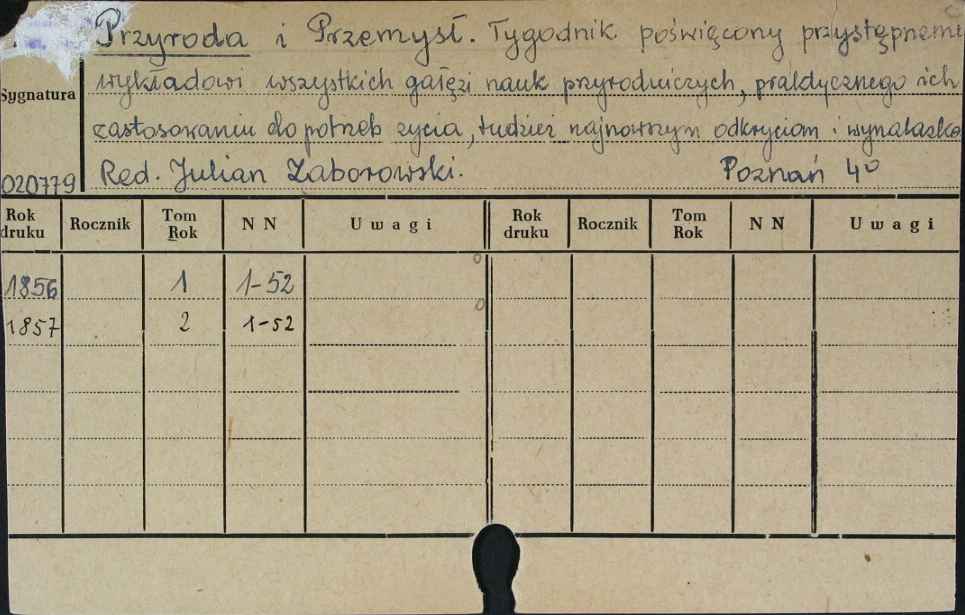 Przyroda i Przemysł. Tygodnik poświęcony przystępnemu
wykładowi wszystkich gałęzi nauk przyrodniczych, praktycznego ich
Sygnatura
zastosowaniu do potrzeb życia, tudzież najnowszym odkryciom i wynalazko
020779 Red. Julian Zaborowski. Poznań 4°
Rok druku Rocznik Tom Rok N N Uwagi Rok druku Rocznik Tom Rok N N Uwagi
1856 1 1-52
1857 2 1-52